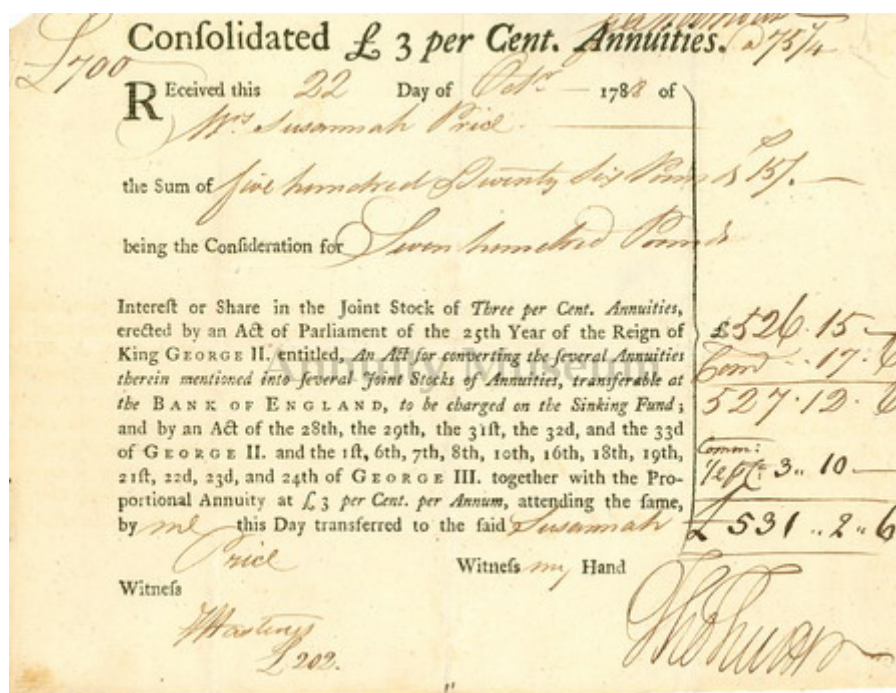 Consolidated £ 3 per Cent. Annuities. a 75¼
£700
REceived this 22 Day of Octr 1788 of
Mrs Susannah Price
the Sum of five hundred & Twenty Six Pounds 15/.
being the Conſideration for Seven hundred Pounds
Intereſt or Share in the Joint Stock of Three per Cent. Annuities,
erected by an Act of Parliament of the 25th Year of the Reign of
King GEORGE II. entitled, An Act for converting the ſeveral Annuities
therein mentioned into ſeveral Joint Stocks of Annuities, transferable at
the BANK OF ENGLAND, to be charged on the Sinking Fund;
and by an Act of the 28th, the 29th, the 31ſt, the 32d, and the 33d
of GEORGE II. and the 1ſt, 6th, 7th, 8th, 10th, 16th, 18th, 19th,
21ſt, 22d, 23d, and 24th of GEORGE III. together with the Pro-
portional Annuity at £ 3 per Cent. per Annum, attending the ſame,
by me this Day transferred to the ſaid Susannah
Price
Witneſs my Hand
Witneſs
Hastings
£202.
£526.15
17.6
527.12.6
Comm:
3..10
£531..2..6
Annuity Museum